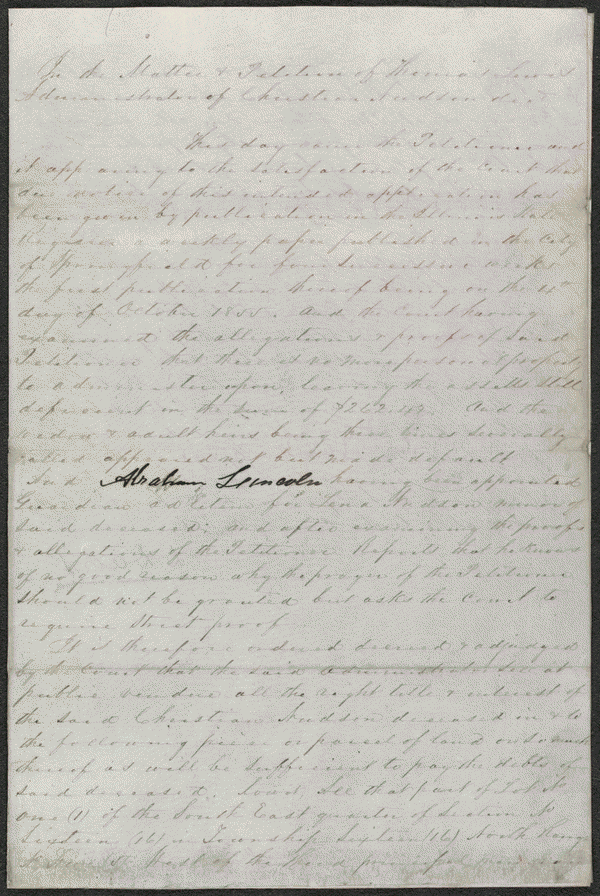 In the Matter & Petition of Thomas Lewis
Administrator of Christian Hudson decd
This day came the Petitioner and
it appearing to the satisfaction of the court that
due notice of this intended application has
been given by publication in the Illinois State
Register a weekly paper published in the City
of Springfield for four successive weeks
the first publication thereof being on the
day of October 1855. And the court having
examined the allegations & proofs of said
Petitioner that there is no more personal property
to administer upon, leaving the assetts still
deficient in the sum of And the
widow & adult heirs being three times severally
called appeared not but made default
And Abraham Lincoln having been appointed
Guardian ad Litem for Hudson minor of
said deceased; and after examining the proofs
& allegations of the Petitioner Reports that he knows
of no good reason why the prayer of the Petitioner
should not be granted but asks the Court to
require strict proof
It is therefore ordered decreed & adjudged
by the Court that the said administrator sell at
public vendue all the right title & interest of
the said Christian Hudson deceased in & to
the following piece or parcel of land or so much
thereof as will be sufficient to pay the debts of
said deceased. Towit, All that part of Lot No
one (1) of the South East quarter of Section No
Sixteen (16) in Township Sixteen (16) North Range
West of the